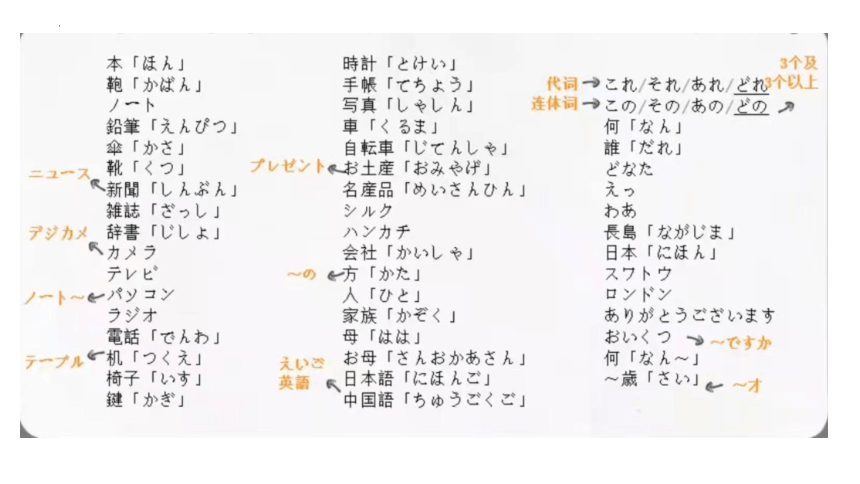 本「ほん」
鞄「かばん」
ノート
鉛筆「えんぴつ」
傘「かさ」
靴「くつ」
ニュース
新聞「しんぶん」
雑誌「ざっし」
辞書「じしょ」
デジカメ
カメラ
テレビ
ノート~
パソコン
ラジオ
電話「でんわ」
テーブル
机「つくえ」
椅子「いす」
鍵「かぎ」
時計「とけい」
手帳「てちょう」
写真「しゃしん」
車「くるま」
自転車「じてんしゃ」
プレゼント
お土産「おみやげ」
名産品「めいさんひん」
シルク
ハンカチ
会社「かいしゃ」
~の
方「かた」
人「ひと」
家族「かぞく」
母「はは」
お母「さんおかあさん」
えいご
英語
日本語「にほんご」
中国語「ちゅうごくご」
3个及
3个以上
代词
これ/それ/あれ/どれ
连体词
この/その/あの/どの
何「なん」
誰「だれ」
どなた
えっ
わあ
長島「ながじま」
日本「にほん」
スワトウ
ロンドン
ありがとうございます
おいくつ
~ですか
何「なん~」
~歳「さい」
~才